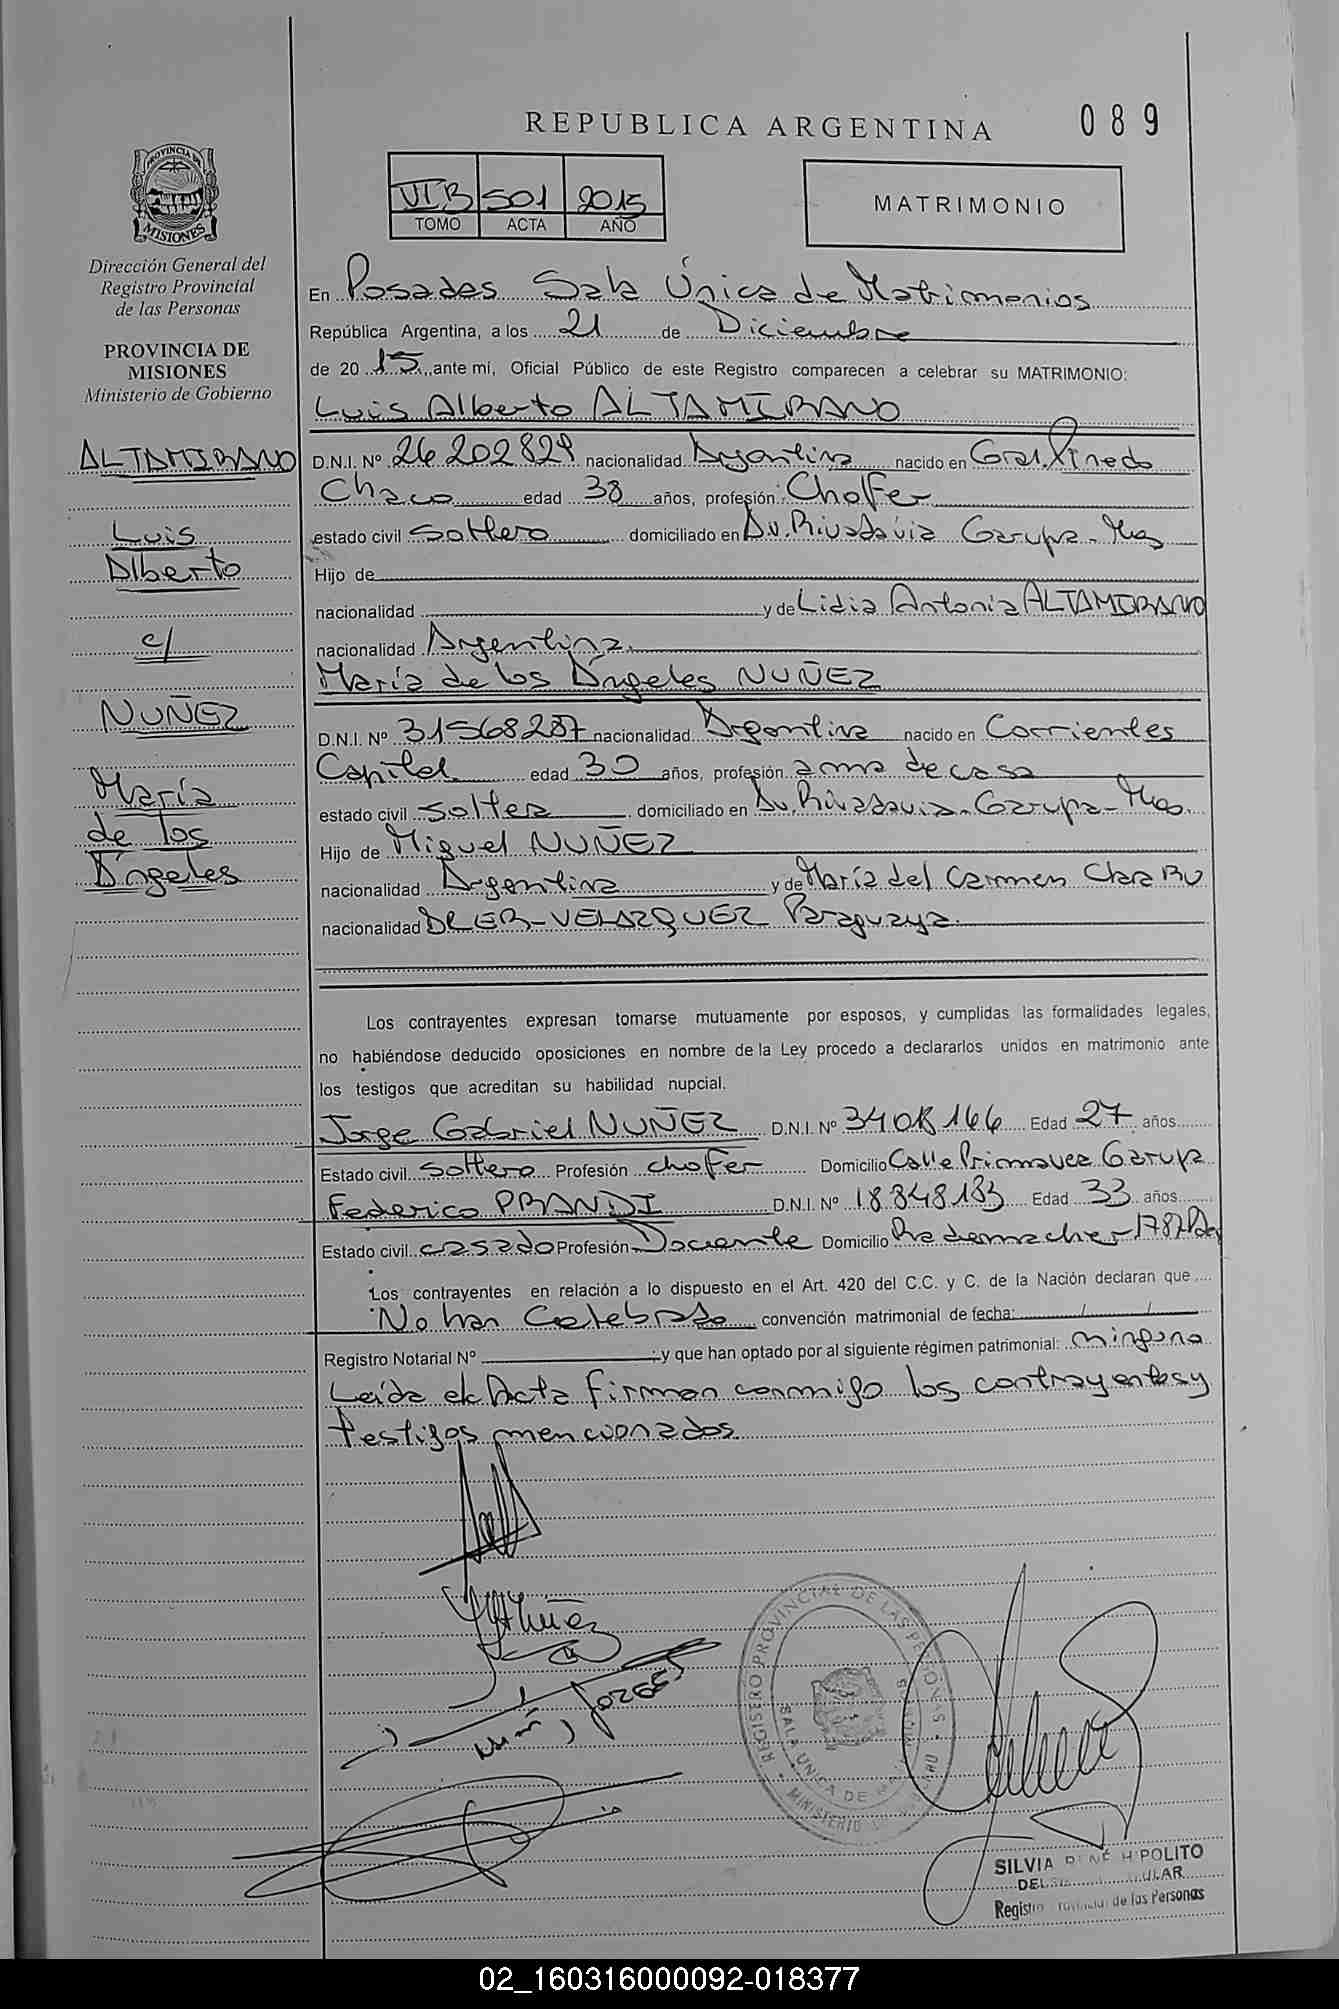 REPUBLICA ARGENTINA
089
PROVINCIA DE
MISIONES
Dirección General del
Registro Provincial
de las Personas
PROVINCIA DE
MISIONES
Ministerio de Gobierno
VI B 501 2015
TOMO ACTA AÑO
MATRIMONIO
ALTAMIRANO
Luis
Alberto
c/
NUÑEZ
María
de los
Ángeles
En Posadas Sala Única de Matrimonios
República Argentina, a los 21 de Diciembre
de 20 15 ante mí, Oficial Público de este Registro comparecen a celebrar su MATRIMONIO:
Luis Alberto ALTAMIRANO
D.N.I. Nº 26202829 nacionalidad Argentina nacido en Gral. Pinedo
Chaco edad 38 años, profesión: Chofer
estado civil soltero domiciliado en Av. Rivadavia Garupa - Mnes
Hijo de
nacionalidad y de Lidia Antonia ALTAMIRANO
nacionalidad Argentina.
María de los Ángeles NUÑEZ
D.N.I. Nº 31568287 nacionalidad Argentina nacido en Corrientes
Capital edad 30 años, profesión ama de casa
estado civil soltera domiciliado en Av. Rivadavia - Garupa - Mnes.
Hijo de Miguel NUÑEZ
nacionalidad Argentina y de María del Carmen
nacionalidad VELAZQUEZ Paraguaya.
Los contrayentes expresan tomarse mutuamente por esposos, y cumplidas las formalidades legales,
no habiéndose deducido oposiciones en nombre de la Ley procedo a declararlos unidos en matrimonio ante
los testigos que acreditan su habilidad nupcial.
Jorge Gabriel NUÑEZ D.N.I. Nº Edad 27 años
Estado civil soltero Profesión chofer Domicilio Calle Primavera Garupa
Federico PRANDI D.N.I. Nº 18.848.183 Edad 33 años
Estado civil casado Profesión Docente Domicilio Rademacher 1787
Los contrayentes en relación a lo dispuesto en el Art. 420 del C.C. y C. de la Nación declaran que
No han Celebrado convención matrimonial de fecha: / /
Registro Notarial Nº y que han optado por al siguiente régimen patrimonial: ninguno
Leída el Acta firman conmigo los contrayentes y
testigos mencionados.
REGISTRO PROVINCIAL DE LAS PERSONAS
SALA UNICA DE
MINISTERIO
SILVIA RENÉ HIPOLITO
Registro Provincial de las Personas
02_160316000092-018377